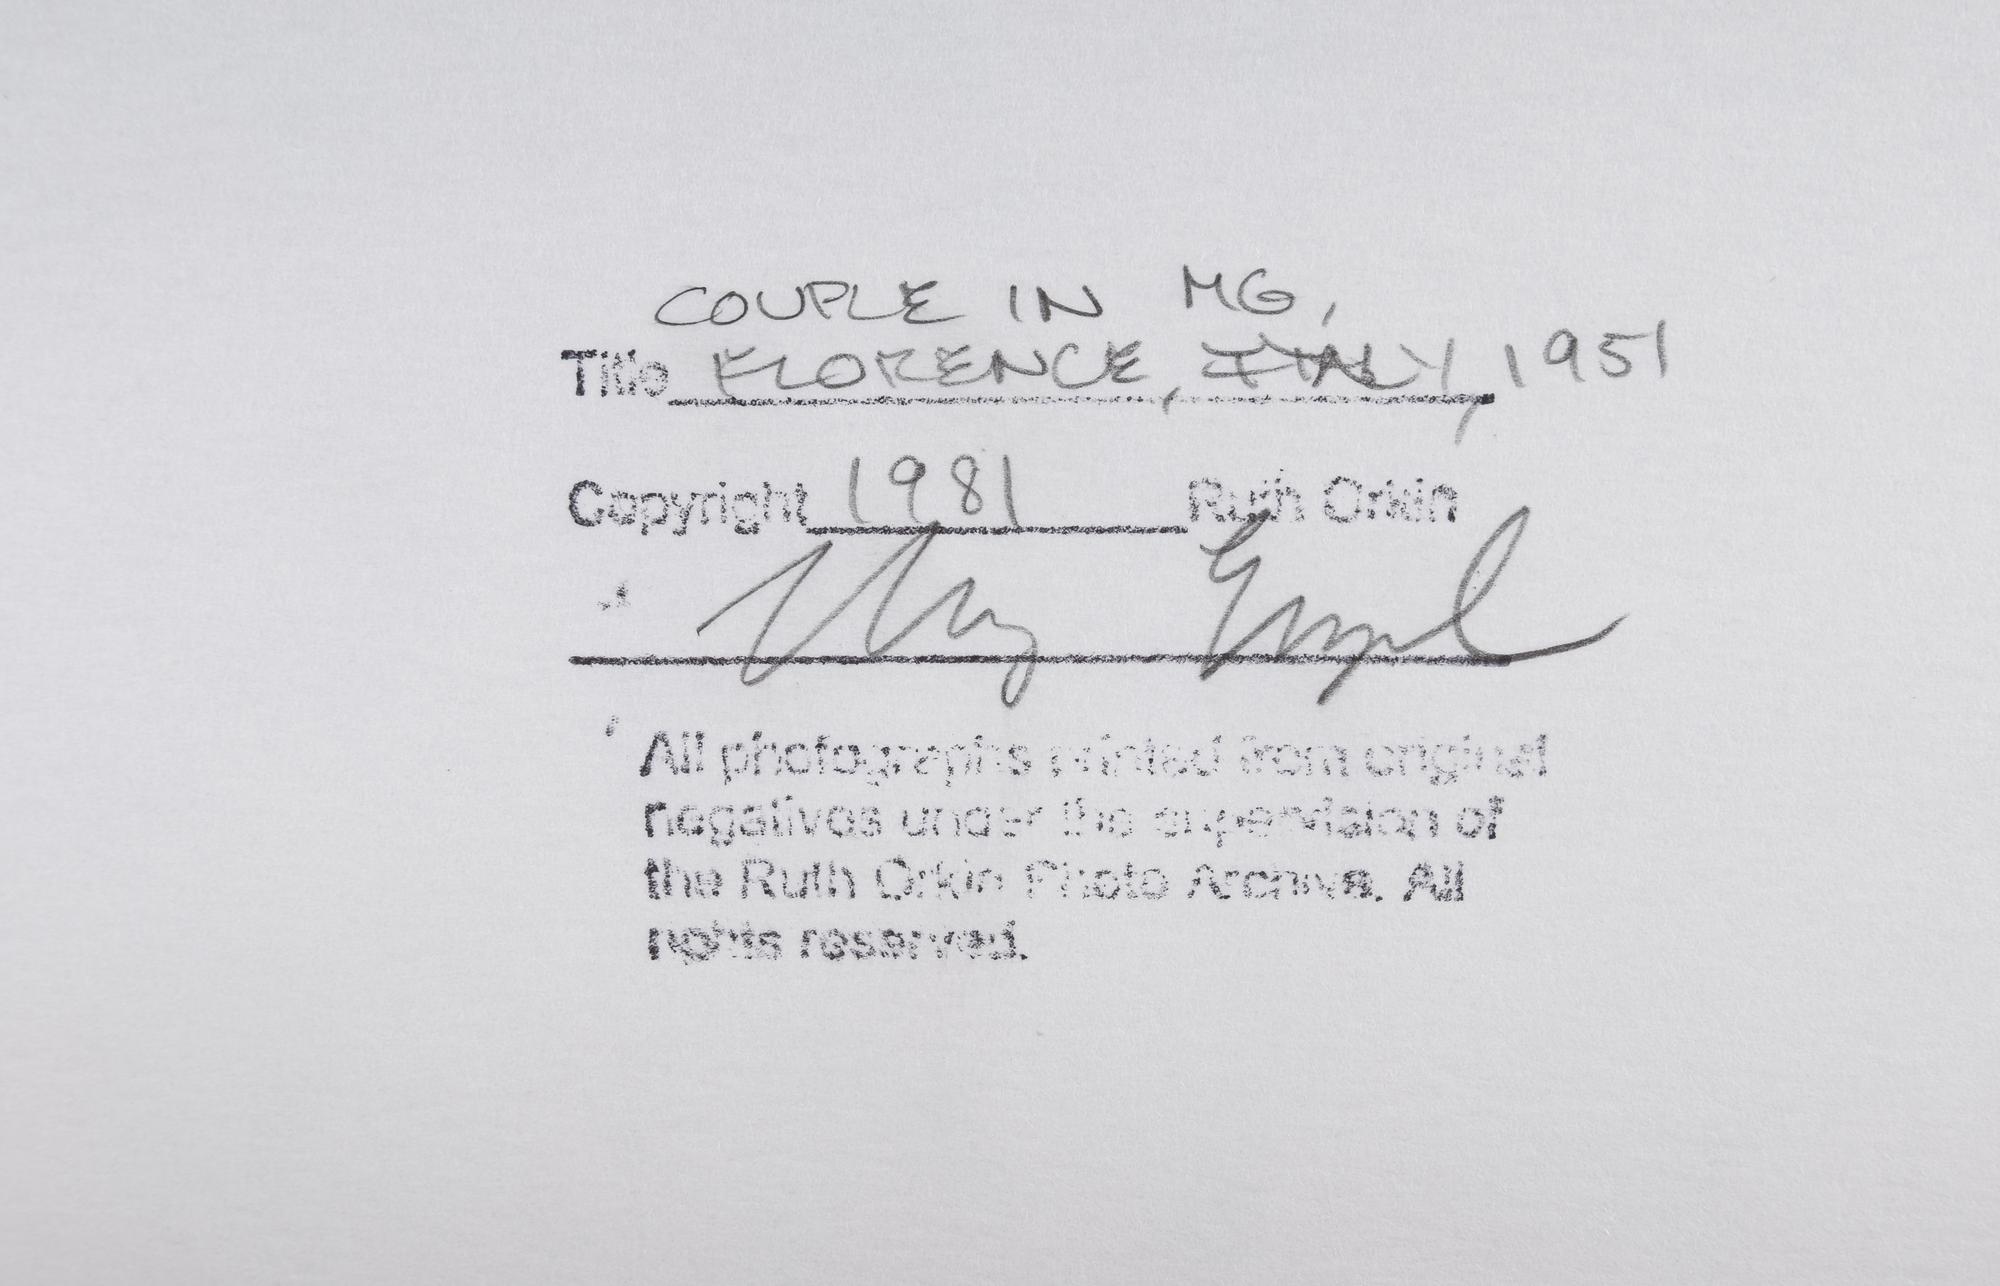 COUPLE IN MG,
Title FLORENCE, ITALY, 1951
Copyright 1981 Ruth Orkin
All photographs printed from original
negatives under the supervision of
the Ruth Orkin Photo Archive. All
rights reserved.